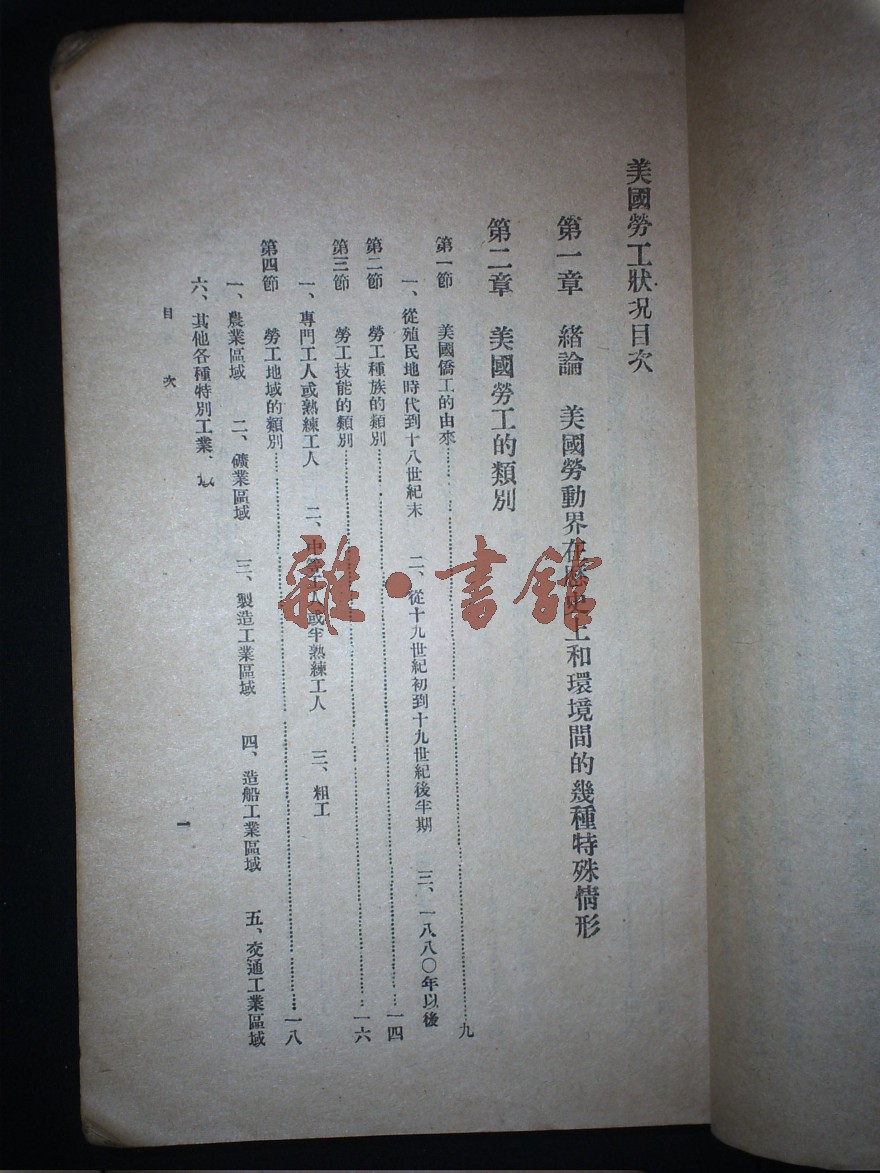 美國勞工狀況目次
第一章　緒論　美國勞動界在歷史上和環境間的幾種特殊情形
第二章　美國勞工的類別
第一節　美國僑工的由來……九
一、從殖民地時代到十八世紀末　二、從十九世紀初到十九世紀後半期　三、一八八〇年以後
第二節　勞工種族的類別……一四
第三節　勞工技能的類別……一六
一、專門工人或熟練工人　二、中等工人或半熟練工人　三、粗工
第四節　勞工地域的類別……一八
一、農業區域　二、礦業區域　三、製造工業區域　四、造船工業區域　五、交通工業區域
六、其他各種特別工業　域
目次
一
雜·書館